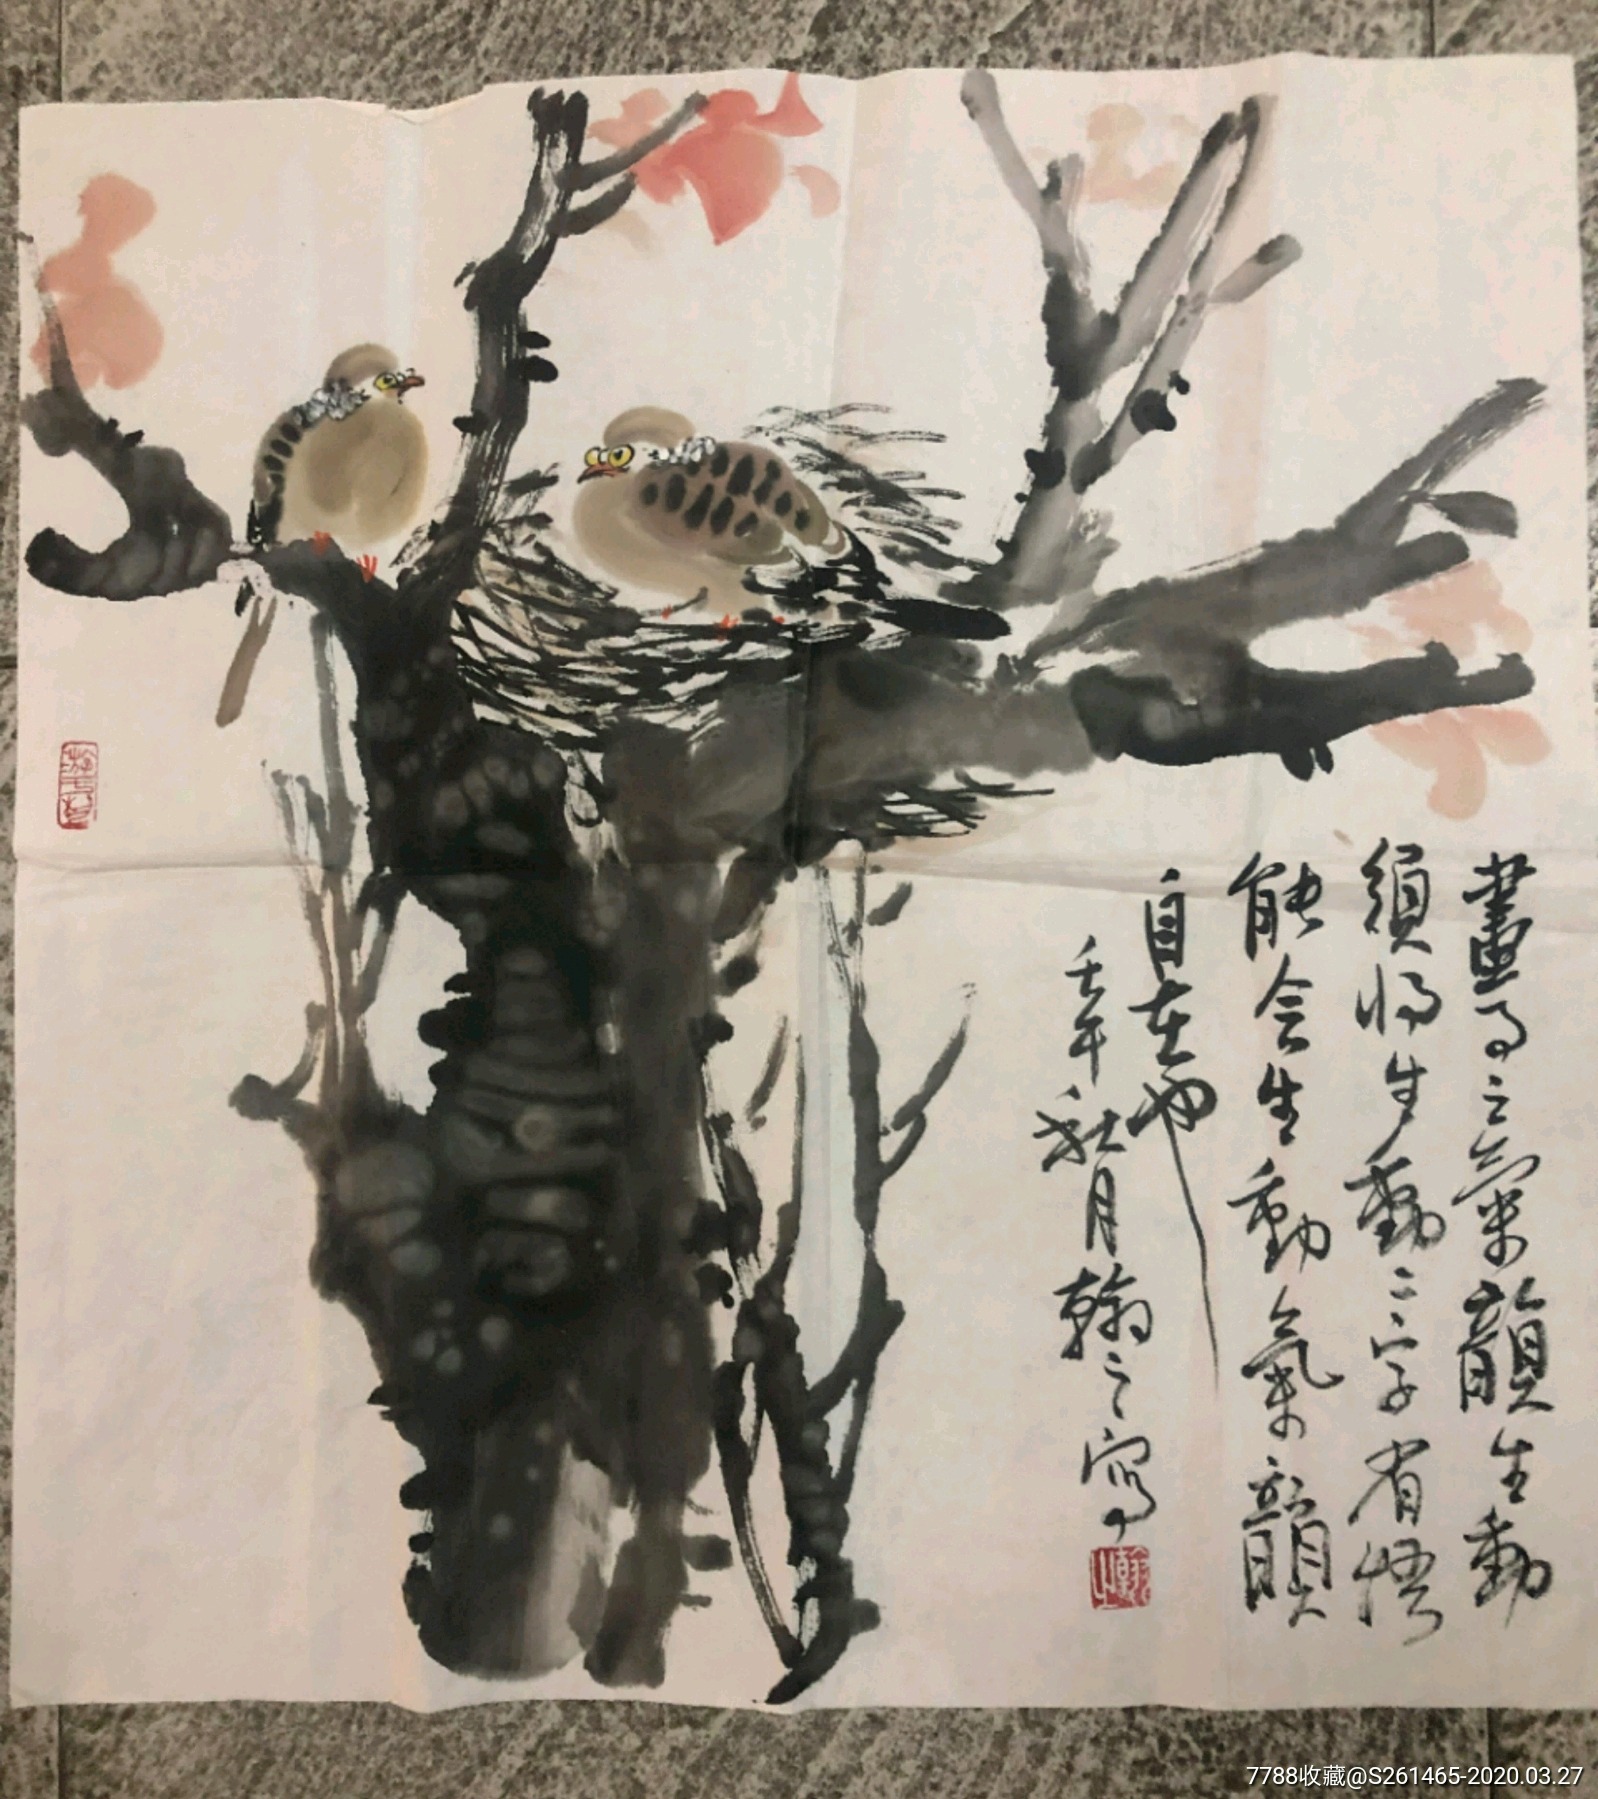 畫之氣韻生動
須将生動二字省悟
能会生動氣韻
自在也
壬午秋月翰之寫
翰之
7788收藏@S261465-2020.03.27